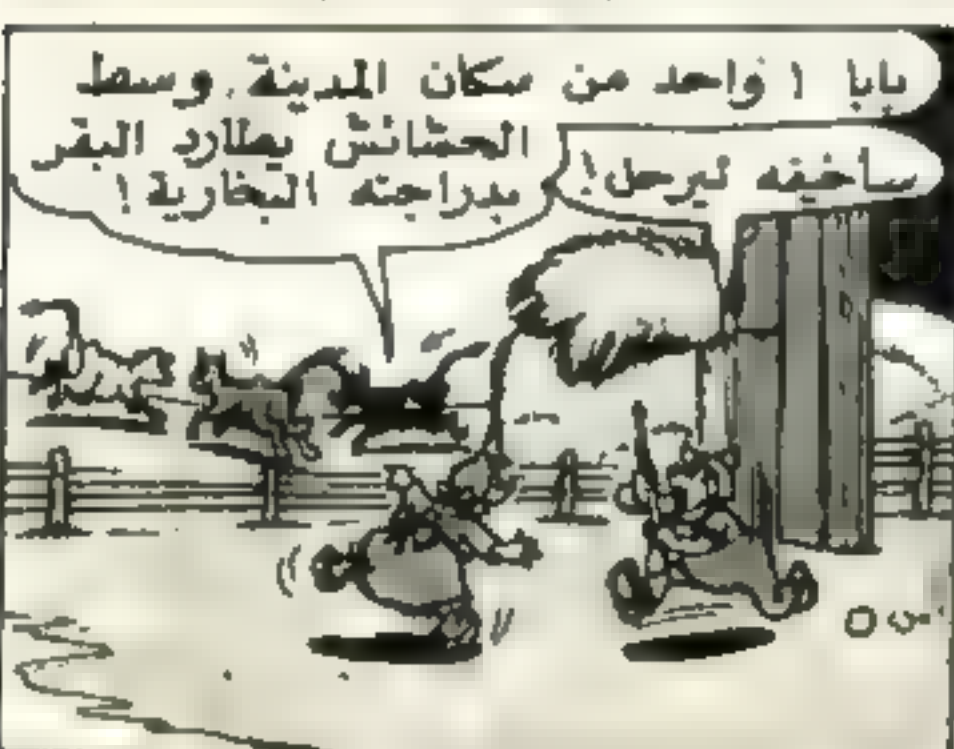 بابا ! واحد من سكان المدينة وسط
الحشائش يطارد البقر
بدراجته البخارية !
سأخيفه ليرحل !